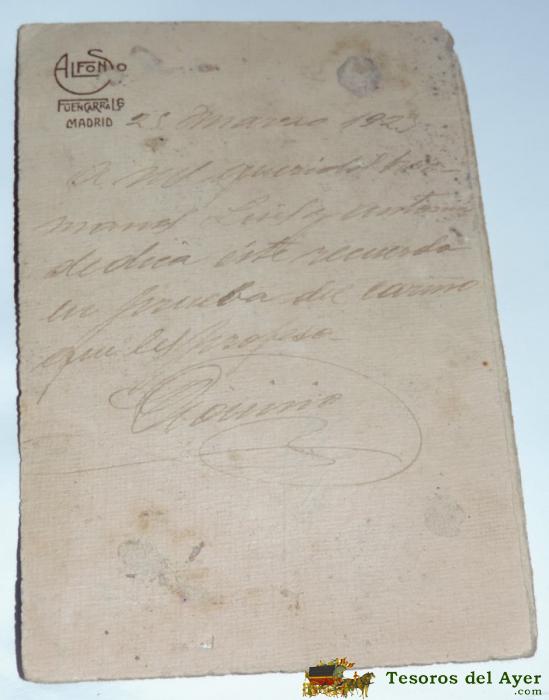 ALFONSO
FUENCARRAL 6
MADRID
25 Marzo 1923
A mis queridos her-
manos Luis y
dedica éste recuerdo
en prueba de cariño
que les profeso.
Tesoros del Ayer
.com